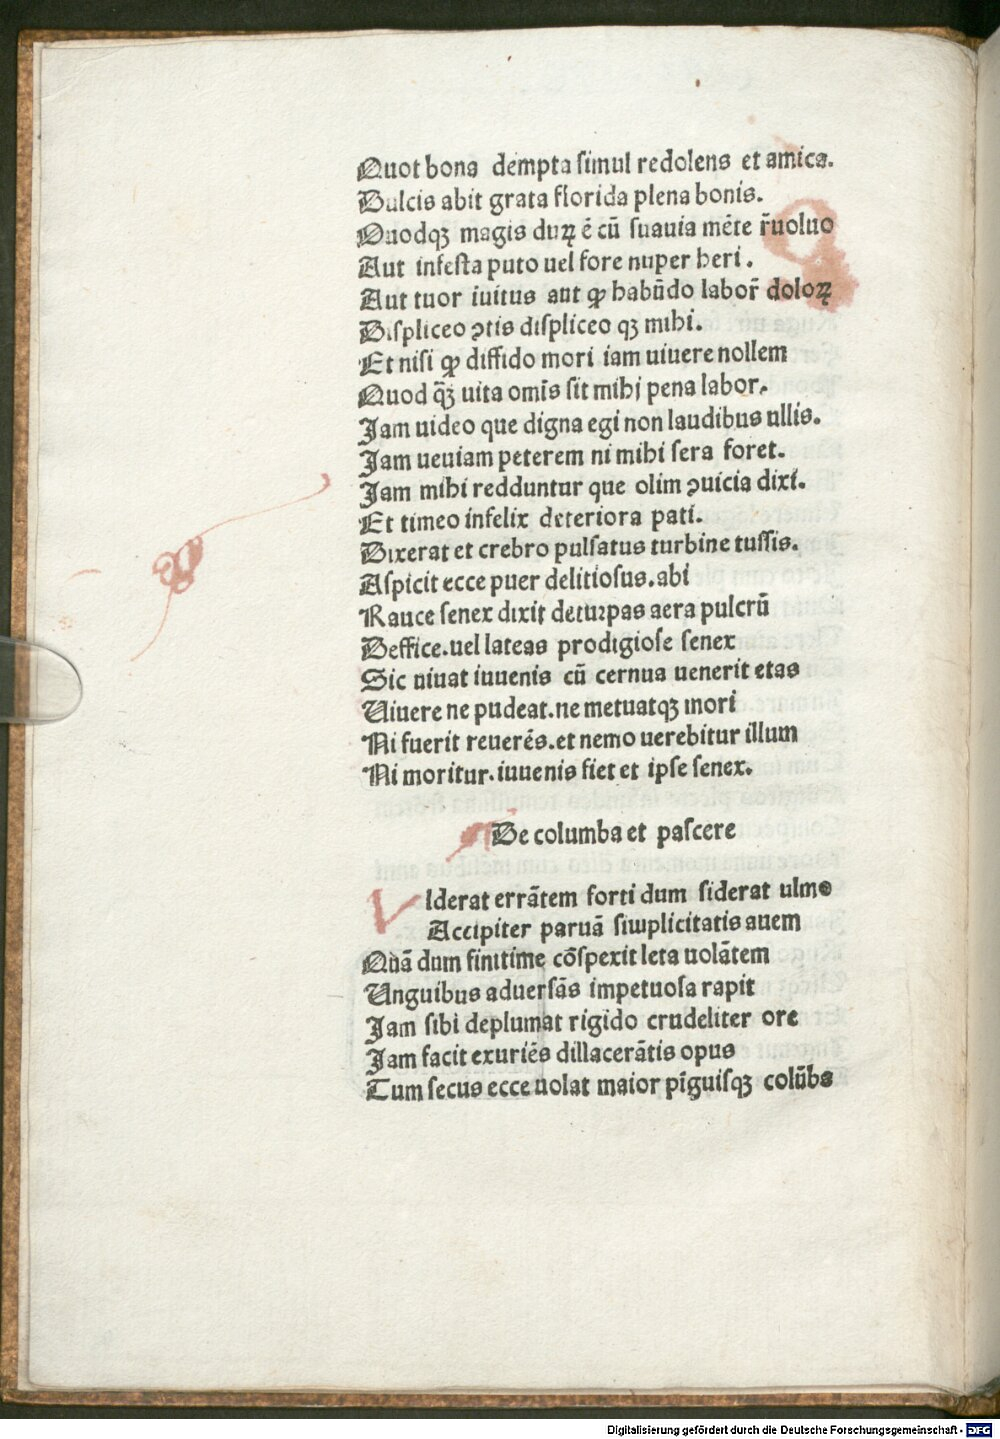 Quot bona dempta simul redolens et amica.
Dulcis abit grata florida plena bonis.
Quodqꝫ magis duꝝ ē cū suauia mēte r̄uoluo
Aut infesta puto uel fore nuper heri.
Aut tuor iuitus aut ꝙ habūdo labor̄ doloꝝ
Displiceo ꝯtis displiceo qꝫ mihi.
Et nisi ꝙ diffido mori iam uiuere nollem
Quod q̄ꝫ uita omīs sit mihi pena labor.
Jam uideo que digna egi non laudibus ullis.
Jam ueuiam peterem ni mihi sera foret.
Jam mihi redduntur que olim ꝯuicia dixi.
Et timeo infelix deteriora pati.
Dixerat et crebro pulsatus turbine tussis.
Aspicit ecce puer delitiosus.abi
Rauce senex dixit deturpas aera pulcrū
Deffice.uel lateas prodigiose senex
Sic uiuat iuuenis cū cernua uenerit etas
Uiuere ne pudeat.ne metuatqꝫ mori
Ni fuerit reuerēs.et nemo uerebitur illum
Ni moritur.iuuenis fiet et ipse senex.
De columba et pascere
V Iderat errātem forti dum siderat ulmo
Accipiter paruā siwplicitatis auem
Quā dum finitime cōspexit leta uolātem
Unguibus aduersās impetuosa rapit
Jam sibi deplumat rigido crudeliter ore
Jam facit exuriēs dillacerātis opus
Tum secus ecce uolat maior pīguisqꝫ colūba
Digitalisierung gefördert durch die Deutsche Forschungsgemeinschaft - DFG